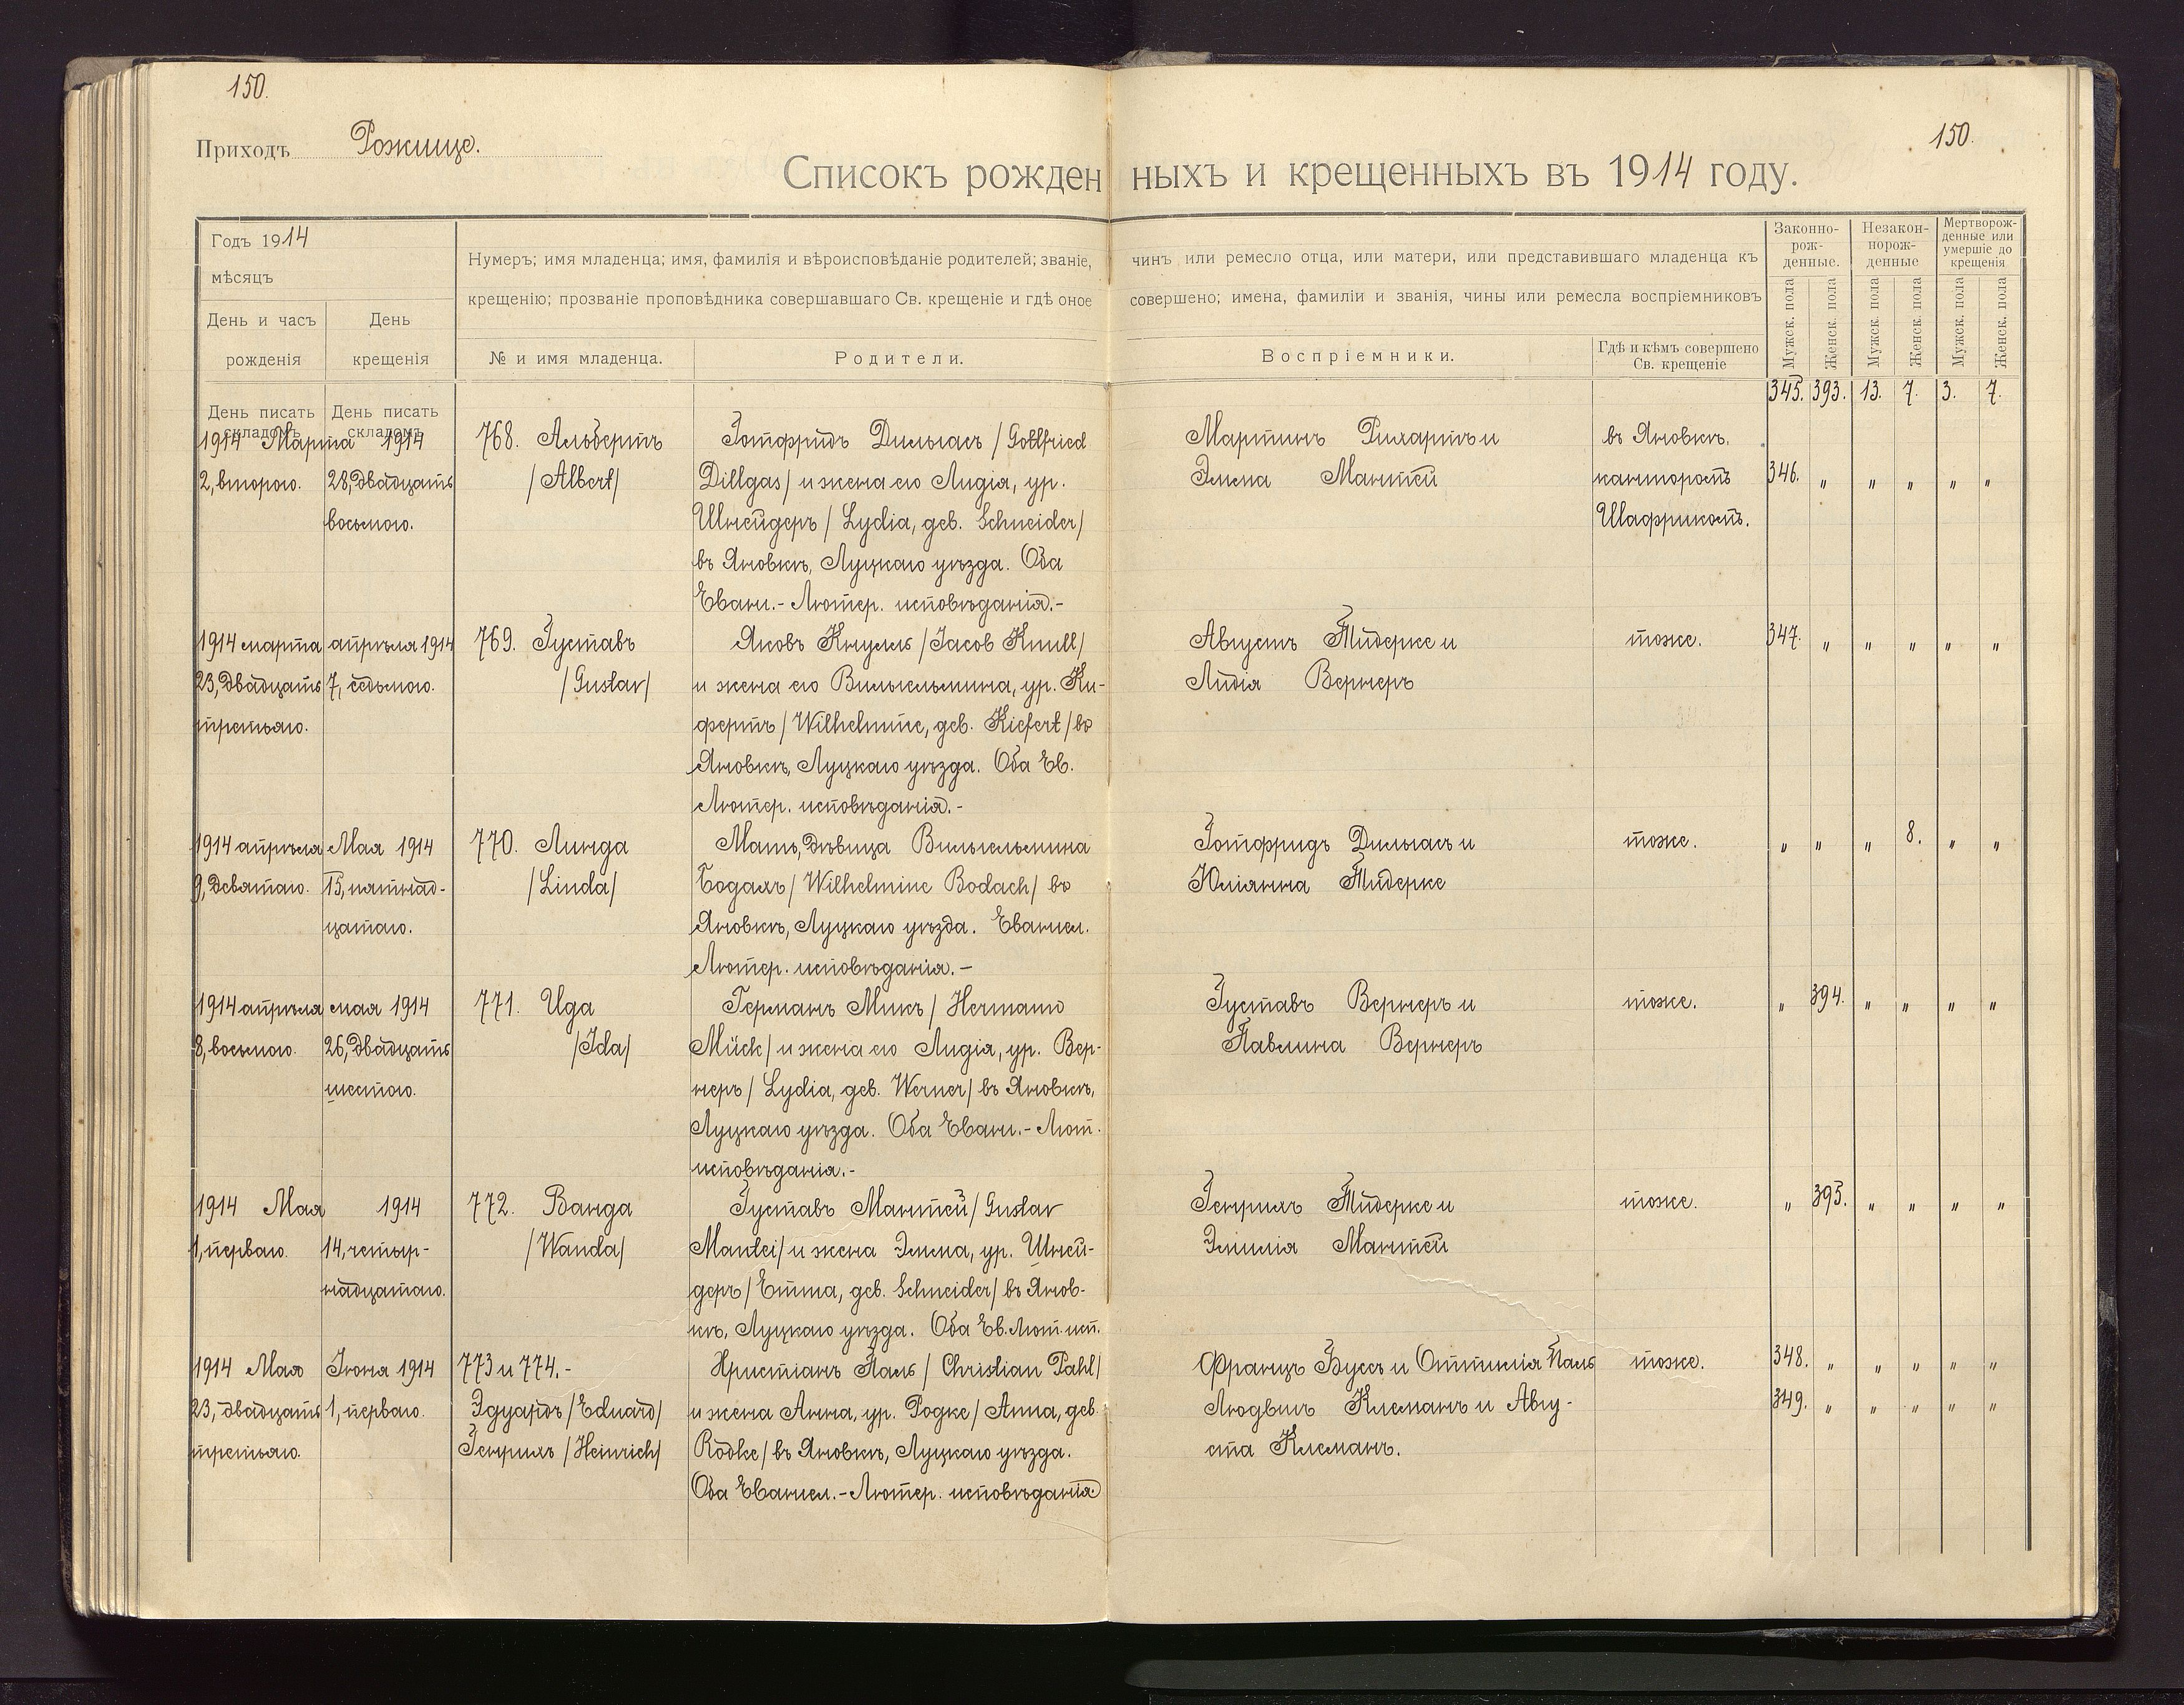 150.
150.
Приходъ Рожище.
Списокъ рожденныхъ и крещенныхъ въ 1914 году.
Годъ 1914
мѣсяцъ
День и часъ рожденія
День крещенія
Нумеръ; имя младенца; имя, фамилія и вѣроисповѣданіе родителей; званіе, чинъ или ремесло отца, или матери, или представившаго младенца къ
крещенію; прозваніе проповѣдника совершавшаго Св. крещеніе и гдѣ оное совершено; имена, фамиліи и званія, чины или ремесла воспріемниковъ
№ и имя младенца.
Родители.
Воспріемники.
Гдѣ и кѣмъ совершено
Св. крещеніе
Законно-
рож-
денные.
Незакон-
норож-
денные
Мертворож-
денные или
умершіе до
крещенія
Мужск. пола
Женск. пола
Мужск. пола
Женск. пола
Мужск. пола
Женск. пола
День писать
складомъ
День писать
складомъ
345. 393. 13. 7. 3. 7.
1914 Марта
2, второго.
1914
28, двадцать
восьмого.
768. Альбертъ
/Albert/
Готфридъ Дильгасъ /Gottfried
Dillgas/ и жена его Лидія, ур.
Шнейдеръ /Lydia, geb. Schneider/
въ Яновкѣ, Луцкаго уѣзда. Оба
Еванг.-Лютер. исповѣданія.-
Мартинъ Рихартъ и
Эмма Мантей
въ Яновкѣ.
канторомъ
Шаффрикомъ.
346. " " " " "
1914 марта
23, двадцать
третьяго.
апрѣля 1914
7, седьмого.
769. Густавъ
/Gustav/
Яковъ Кнулль /Jacob Knull/
и жена его Вильгельмина, ур. Ки-
фертъ /Wilhelmine, geb. Kiefert/ въ
Яновкѣ, Луцкаго уѣзда. Оба Ев.
Лютер. исповѣданія.-
Августъ Тидерке и
Лидія Вернеръ
тоже.
347. " " " " "
1914 апрѣля
9, девятаго.
Мая 1914
15, пятнад-
цатаго.
770. Линда
/Linda/
Мать, дѣвица Вильгельмина
Бодахъ /Wilhelmine Bodach/ въ
Яновкѣ, Луцкаго уѣзда. Евангел.
Лютер. исповѣданія.-
Готфридъ Дильгасъ и
Юліянна Тидерке
тоже.
" " " 8. " "
1914 апрѣля
8, восьмого.
мая 1914
26, двадцать
шестого.
771. Ида
/Ida/
Германъ Микъ /Hermann
Mück/ и жена его Лидія, ур. Вер-
неръ /Lydia, geb. Werner/ въ Яновкѣ,
Луцкаго уѣзда. Оба Еванг.-Лют.
исповѣданія.-
Густавъ Вернеръ и
Павлина Вернеръ
тоже.
" 394. " " " "
1914 Мая
1, перваго.
1914
14, четыр-
надцатаго.
772. Ванда
/Wanda/
Густавъ Мантей /Gustav
Mantei/ и жена Эмма, ур. Шней-
деръ /Emma, geb. Schneider/ въ Янов-
кѣ, Луцкаго уѣзда. Оба Ев. Лют. исп.
Генрихъ Тидерке и
Эмилія Мантей
тоже.
" 395. " " " "
1914 Мая
23, двадцать
третьяго.
Іюня 1914
1, перваго.
773 и 774.-
Эдуардъ /Eduard/
Генрихъ /Heinrich/
Христіанъ Паль /Christian Pahl/
и жена Анна, ур. Родке /Anna, geb.
Rodke/ въ Яновкѣ, Луцкаго уѣзда.
Оба Евангел.-Лютер. исповѣданія
Францъ Буссъ и Оттилія Паль
Людвигъ Клеманъ и Авгу-
ста Клеманъ.
тоже.
348. " " " " "
349. " " " " "